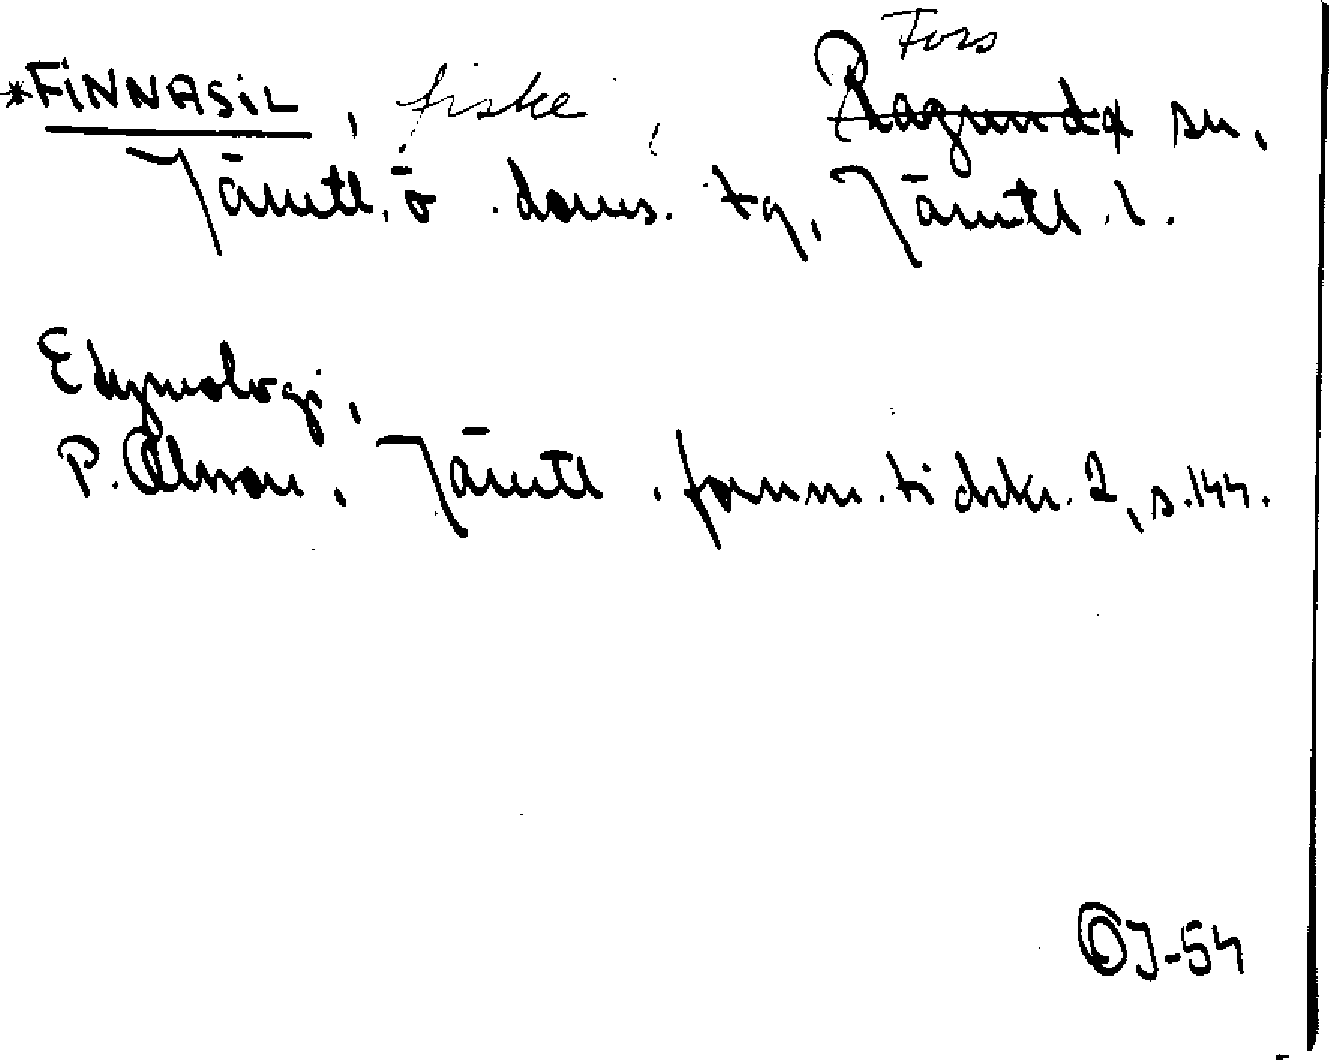 Fors
*FINNASIL, fiske, Ragunda sn,
Jämtl. ö. doms. tg, Jämtl. l.
Etymologi,
P. Olsson, Jämtl. fornm. tidskr. 2, s. 144.
OJ-54